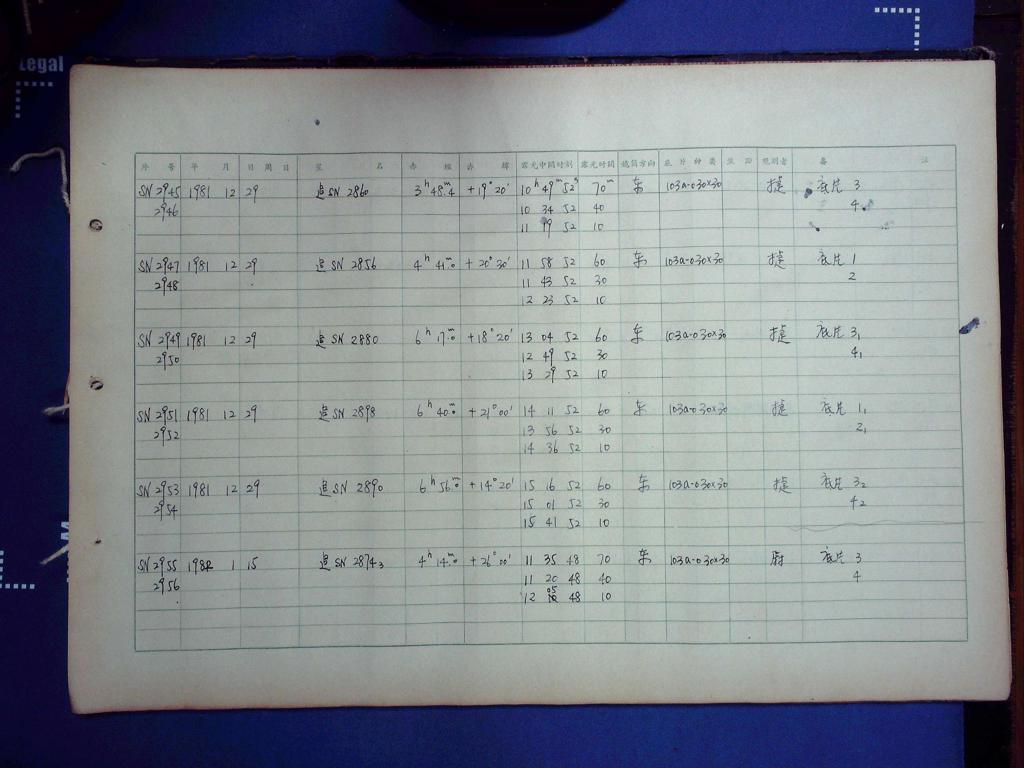 Legal
序 号 年 月 日 周 日 星 名 赤 经 赤 纬 露光中间时刻 露光时间 镜筒方向 底 片 种 类 观测者 备 注
SN 2945 1981 12 29 追SN 2860 3ʰ 48ᵐ.4 +19° 20' 10ʰ 49ᵐ 52ˢ 70ᵐ 东 103a-O 30×30 捷 底片 3
2946 10 34 52 40 4
11 19 52 10
SN 2947 1981 12 29 追SN 2856 4ʰ 41ᵐ.0 +20° 30' 11 58 52 60 东 103a-O 30×30 捷 底片 1
2948 11 43 52 30 2
12 23 52 10
SN 2949 1981 12 29 追SN 2880 6ʰ 17ᵐ.0 +18° 20' 13 04 52 60 东 103a-O 30×30 捷 底片 3₁
2950 12 49 52 30 4₁
13 29 52 10
SN 2951 1981 12 29 追SN 2898 6ʰ 40ᵐ.0 +21° 00' 14 11 52 60 东 103a-O 30×30 捷 底片 1₁
2952 13 56 52 30 2₁
14 36 52 10
SN 2953 1981 12 29 追SN 2890 6ʰ 56ᵐ.0 +14° 20' 15 16 52 60 东 103a-O 30×30 捷 底片 3₂
2954 15 01 52 30 4₂
15 41 52 10
SN 2955 1982 1 15 追SN 2874₃ 4ʰ 14ᵐ.0 +26° 00' 11 35 48 70 东 103a-O 30×30 尉 底片 3
2956 11 20 48 40 4
12 05 48 10